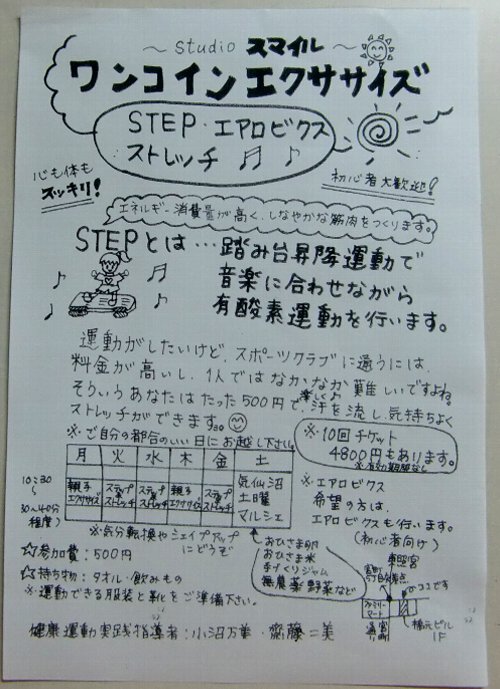 ～ studio スマイル ～
ワンコインエクササイズ
STEP・エアロビクス
ストレッチ
心も体も
スッキリ!
初心者大歓迎!
エネルギー消費量が高く、しなやかな筋肉をつくります。
STEPとは…踏み台昇降運動で
音楽に合わせながら
有酸素運動を行います。
運動がしたいけど、スポーツクラブに通うには、
料金が高いし、1人ではなかなか難しいですよね。
そういうあなたはたった500円で、楽しく汗を流し、気持ちよく
ストレッチができます。
※ご自分の都合のいい日にお越し下さい。
※・10回チケット
4800円もあります。
月 火 水 木 金 土
10:30
～
30～40分
程度)
親子エクササイズ
ステップ&ストレッチ
ステップ&ストレッチ
親子エクササイズ
ステップ&ストレッチ
気仙沼
土曜
マルシェ
※気分転換やシェイプアップ
にどうぞ
※エアロビクス
希望の方は、
エアロビクスも行います。
(初心者向け)
☆参加費:500円
☆持ち物:タオル・飲みもの
※運動できる服装と靴をご準備下さい。
おひさま卵
おひさま米
手づくりジャム
無農薬野菜など
東照宮
ココです
ファミリーマート
橋元ビル
1F
健康運動実践指導者:小沼万美・齋藤仁美